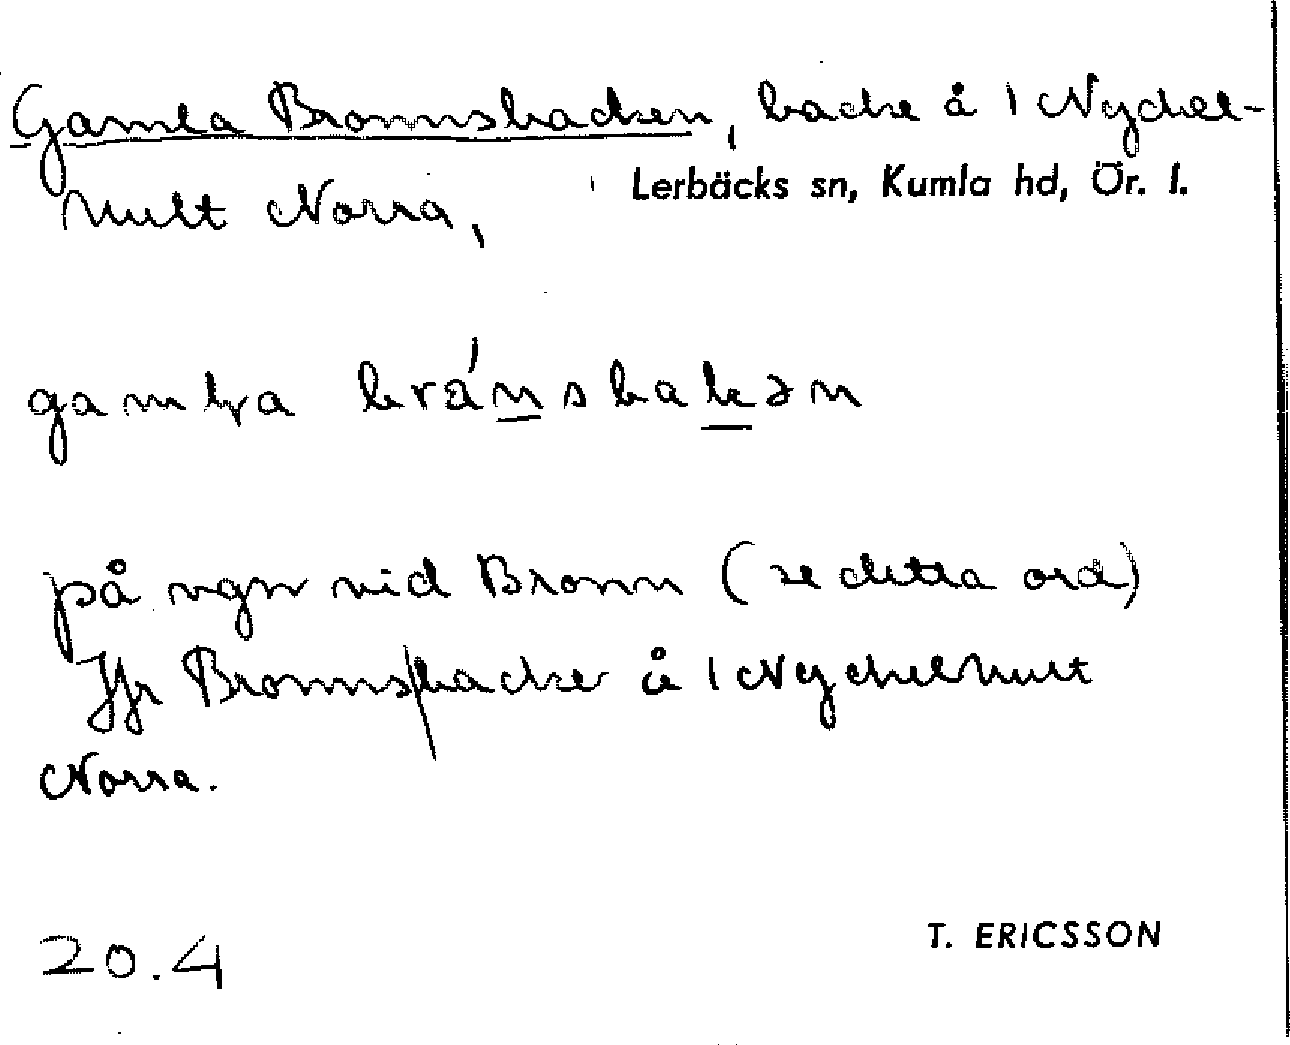 Gamla Bromsbacken, backe å 1 Nyckel-
hult Norra, Lerbäcks sn, Kumla hd, Ör. l.
på vgn vid Brom (se detta ord)
Jfr Bromsbacke å 1 Nyckelhult
Norra.
20.4
T. ERICSSON